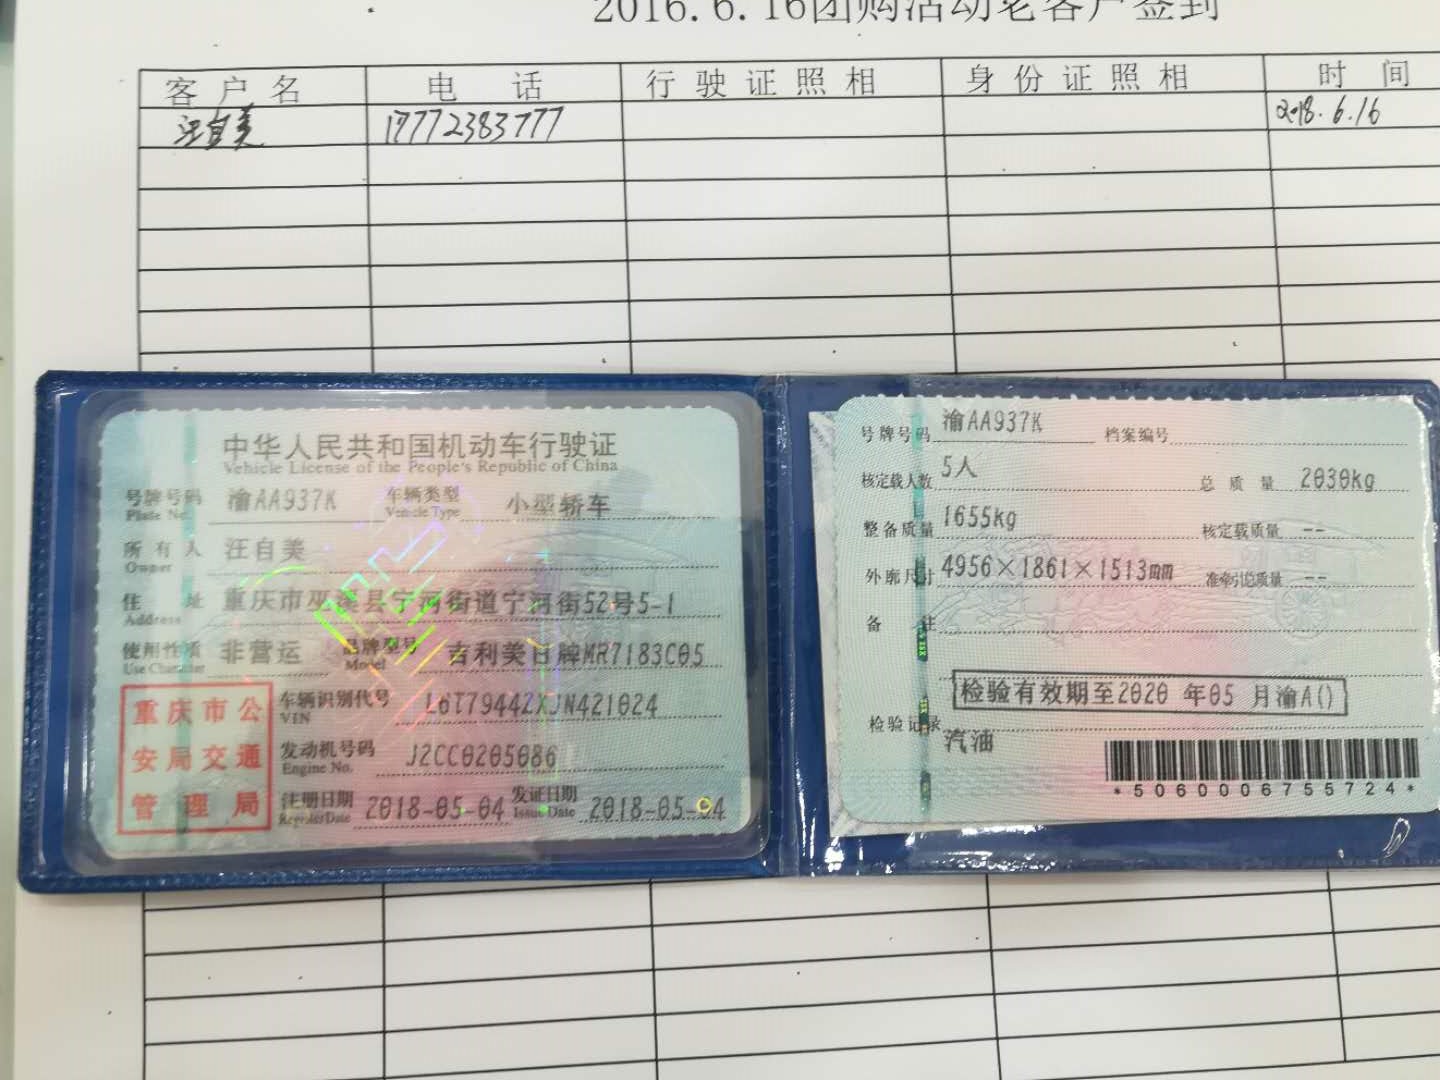 2016.6.16团购活动老客户签到
客户名 电话 行驶证照相 身份证照相 时间
汪自美 17772383777 2018.6.16
中华人民共和国机动车行驶证
Vehicle License of the People's Republic of China
号牌号码 渝AA937K 车辆类型 小型轿车
Plate No. Vehicle Type
所有人 汪自美
Owner
住址 重庆市巫溪县宁河街道宁河街52号5-1
Address
使用性质 非营运 品牌型号 吉利美日牌MR7183C05
Use Character Model
重庆市公
安局交通
管理局
车辆识别代号 L6T7944ZXJN421024
VIN
发动机号码 J2CC0205086
Engine No.
注册日期 2018-05-04 发证日期 2018-05-04
Register Date Issue Date
号牌号码 渝AA937K 档案编号
核定载人数 5人 总质量 2030kg
整备质量 1655kg 核定载质量 --
外廓尺寸 4956×1861×1513mm 准牵引总质量 --
备注
检验有效期至2020年05月渝A()
检验记录
汽油
*5060006755724*